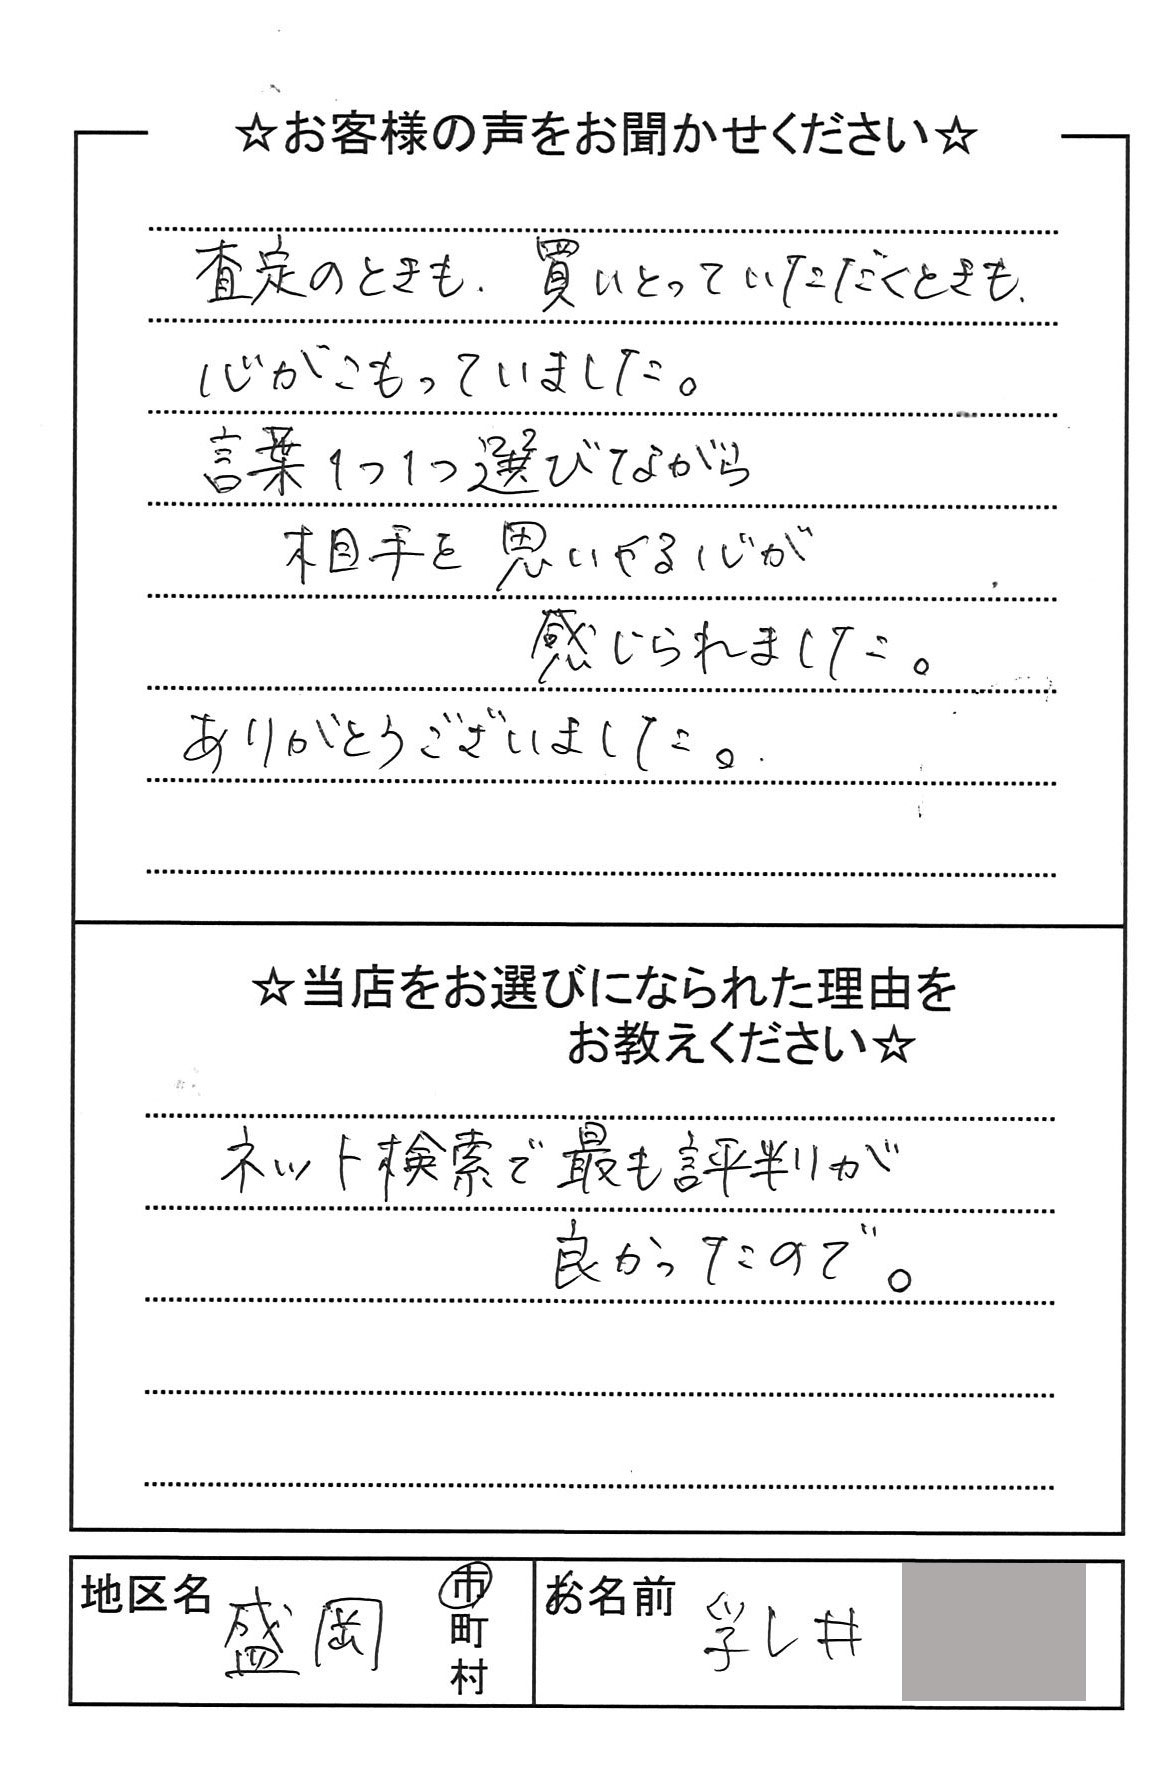 ☆お客様の声をお聞かせください☆
査定のときも、買いとっていただくときも、
心がこもっていました。
言葉1つ1つ選びながら
相手を思いやる心が
感じられました。
ありがとうございました。
☆当店をお選びになられた理由を
お教えください☆
ネット検索で最も評判りが
良かったので。
地区名 盛岡 市
町
村
お名前 乳井